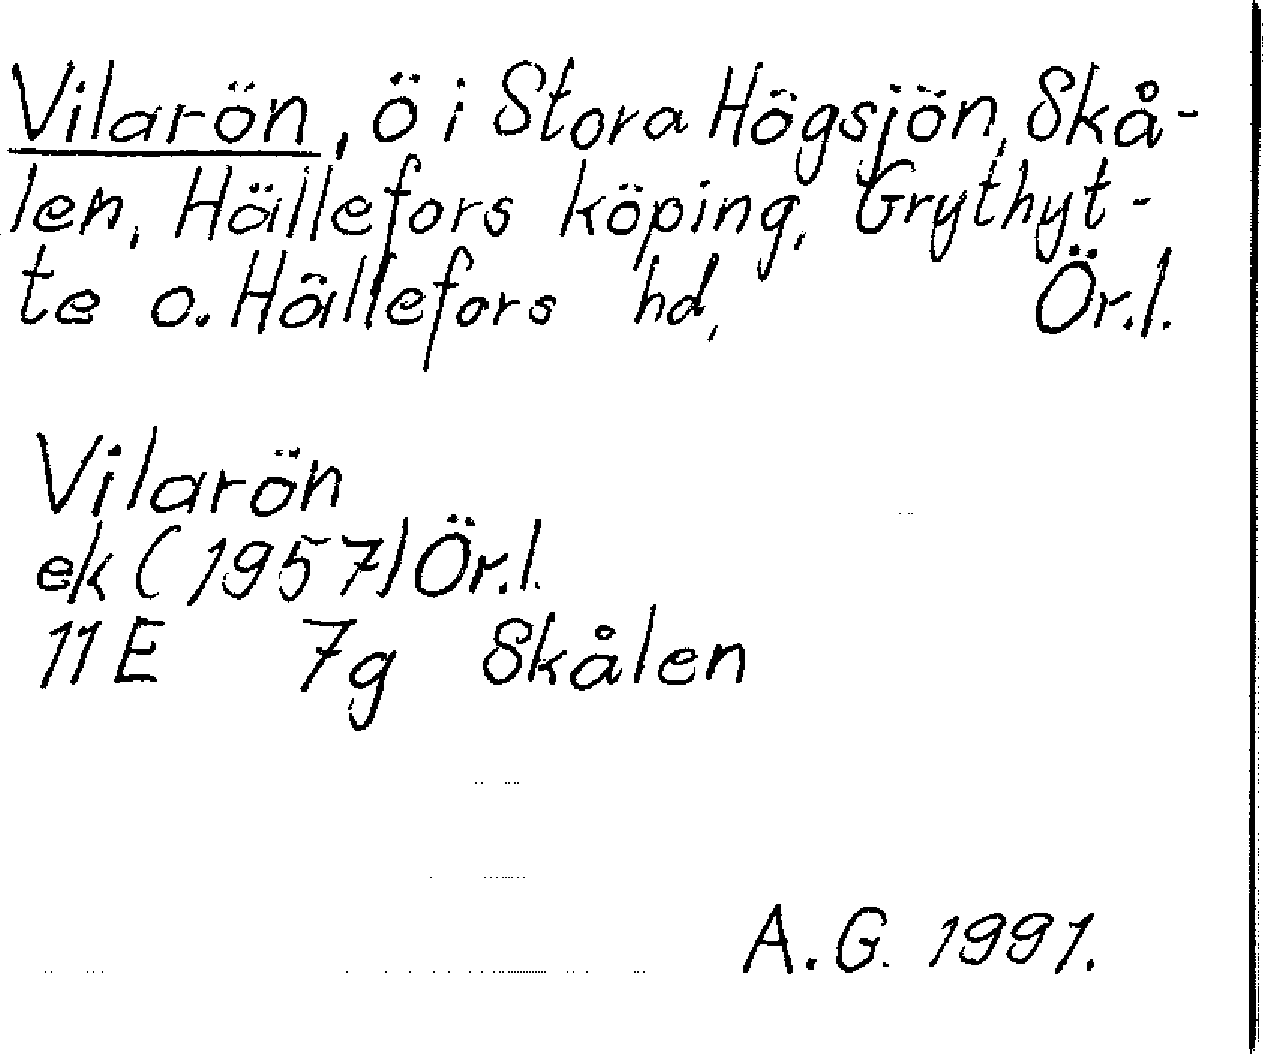 Vilarön, ö i Stora Högsjön, Skå-
len, Hällefors köping, Grythyt-
te o. Hällefors hd, Ör.l.
Vilarön
ek (1957) Ör.l.
11E 7g Skålen
A.G. 1991.